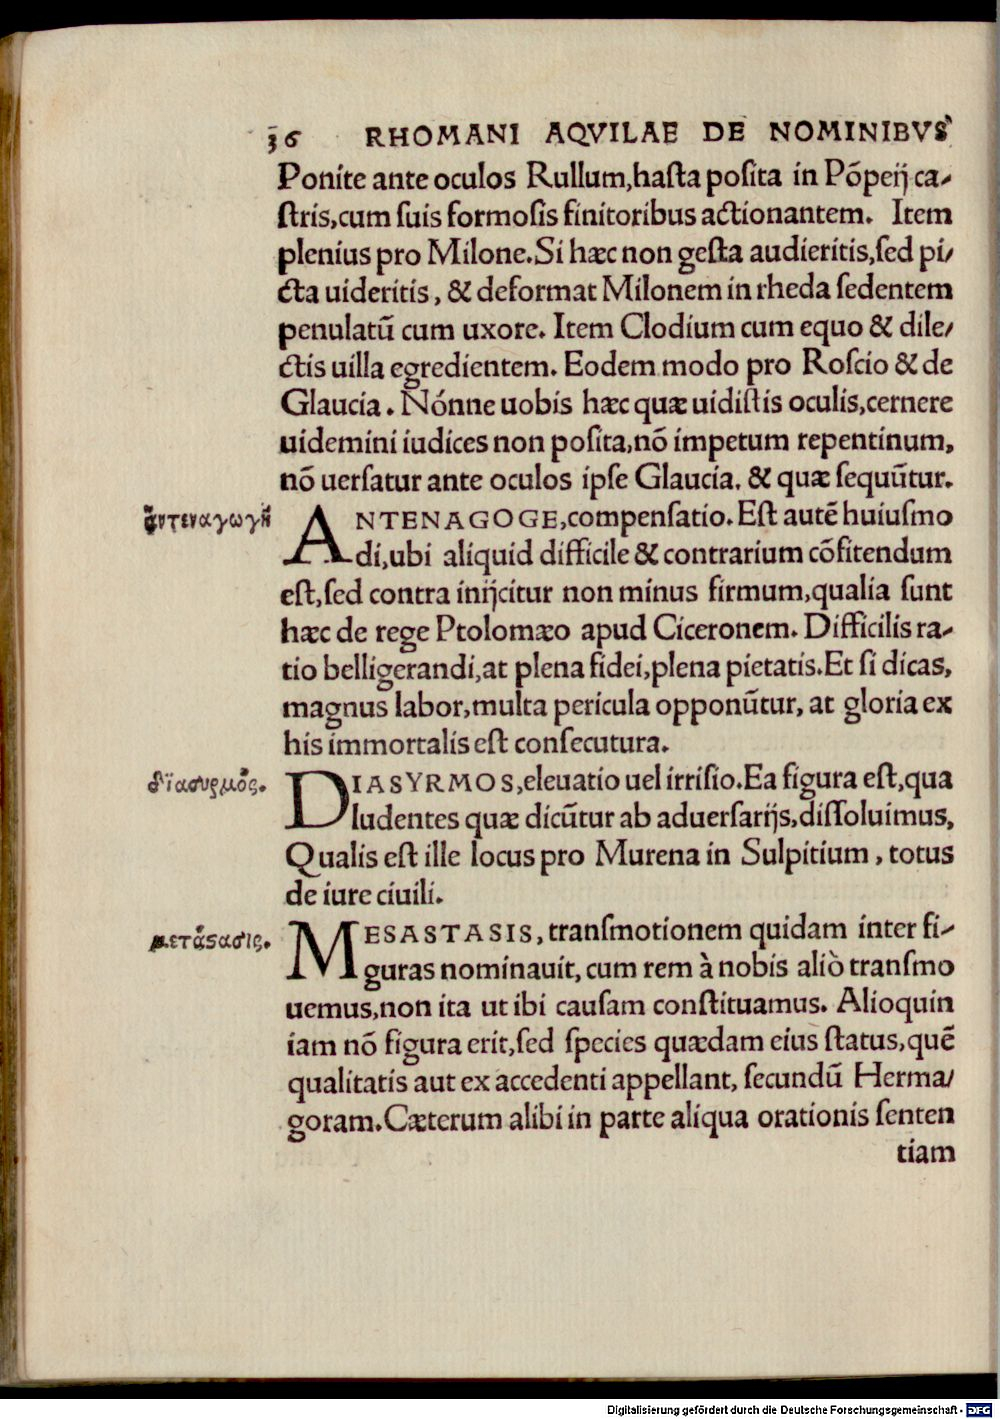 36 RHOMANI AQVILAE DE NOMINIBVS
Ponite ante oculos Rullum,hasta posita in Põpeij ca-
stris,cum suis formosis finitoribus actionantem. Item
plenius pro Milone.Si hæc non gesta audieritis,sed pi-
cta uideritis, & deformat Milonem in rheda sedentem
penulatũ cum uxore. Item Clodium cum equo & dile-
ctis uilla egredientem. Eodem modo pro Roscio & de
Glaucia. Nónne uobis hæc quæ uidistis oculis,cernere
uidemini iudices non posita,nõ impetum repentinum,
nõ uersatur ante oculos ipse Glaucia. & quæ sequũtur.
ἀντεναγωγὴ
ANTENAGOGE,compensatio. Est autẽ huiusmo
di,ubi aliquid difficile & contrarium cõfitendum
est,sed contra inijcitur non minus firmum,qualia sunt
hæc de rege Ptolomæo apud Ciceronem. Difficilis ra-
tio belligerandi,at plena fidei,plena pietatis.Et si dicas,
magnus labor,multa pericula opponũtur, at gloria ex
his immortalis est consecutura.
διασυρμὸς.
DIASYRMOS,eleuatio uel irrisio.Ea figura est,qua
ludentes quæ dicũtur ab aduersarijs,dissoluimus,
Qualis est ille locus pro Murena in Sulpitium, totus
de iure ciuili.
μετάστασις.
MESASTASIS, transmotionem quidam inter fi-
guras nominauit, cum rem à nobis aliò transmo
uemus,non ita ut ibi causam constituamus. Alioquin
iam nõ figura erit,sed species quædam eius status,quẽ
qualitatis aut ex accedenti appellant, secundũ Herma-
goram.Cæterum alibi in parte aliqua orationis senten
tiam
Digitalisierung gefördert durch die Deutsche Forschungsgemeinschaft - DFG